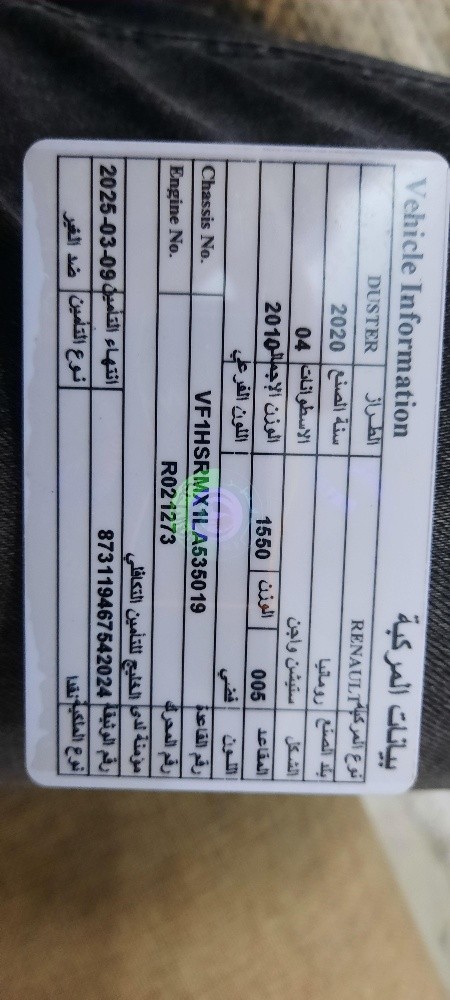 Vehicle Information بيانات المركبة
نوع المركبة RENAULT الطراز DUSTER
بلد الصنع رومانيا سنة الصنع 2020
الشكل ستيشن واجن الاسطوانات 04
المقاعد 005 الوزن 1550 الوزن الإجمالي 2010
اللون فضي اللون الفرعي
رقم القاعدة VF1HSRMX1LA535019 Chassis No.
رقم المحرك R021273 Engine No.
مؤمنة لدى الخليج للتأمين التكافلي
رقم الوثيقة 873119467542024 انتهاء التأمين 2025-03-09
نوع الملكية نقدا نوع التأمين ضد الغير